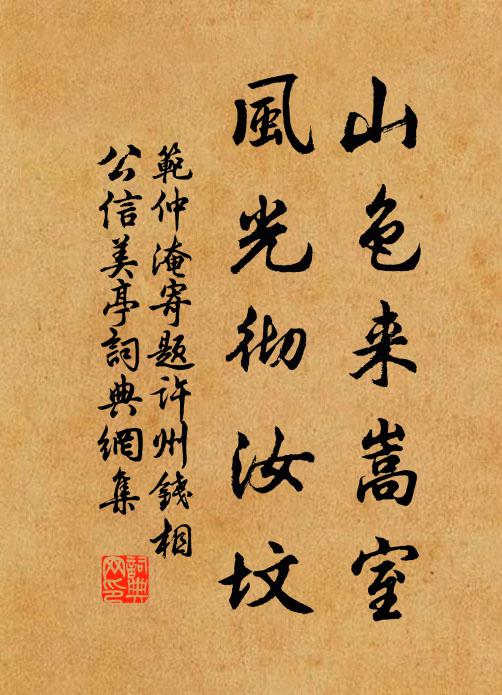 山色来嵩室
風光彻汝坟
範仲淹寄題许州錢相
公信美亭詞典網集
詞典
网印